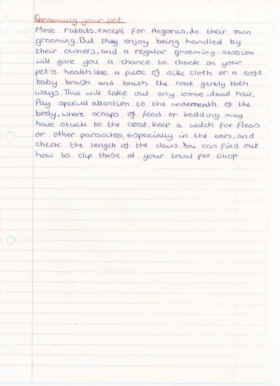 Grooming your pet
Most rabbits, except for Angoras, do their own
grooming. But they enjoy being handled by
their owners, and a regular grooming session
will give you a chance to check on your
pet's health. Use a piece of silk cloth or a soft
baby brush and brush the coat gently both
ways. This will take out any loose, dead hair.
Pay special attention to the underneath of the
body, where scraps of food or bedding may
have stuck to the coat. Keep a watch for fleas
or other parasites, especially in the ears, and
check the length of the claws. You can find out
how to clip these at your local pet shop